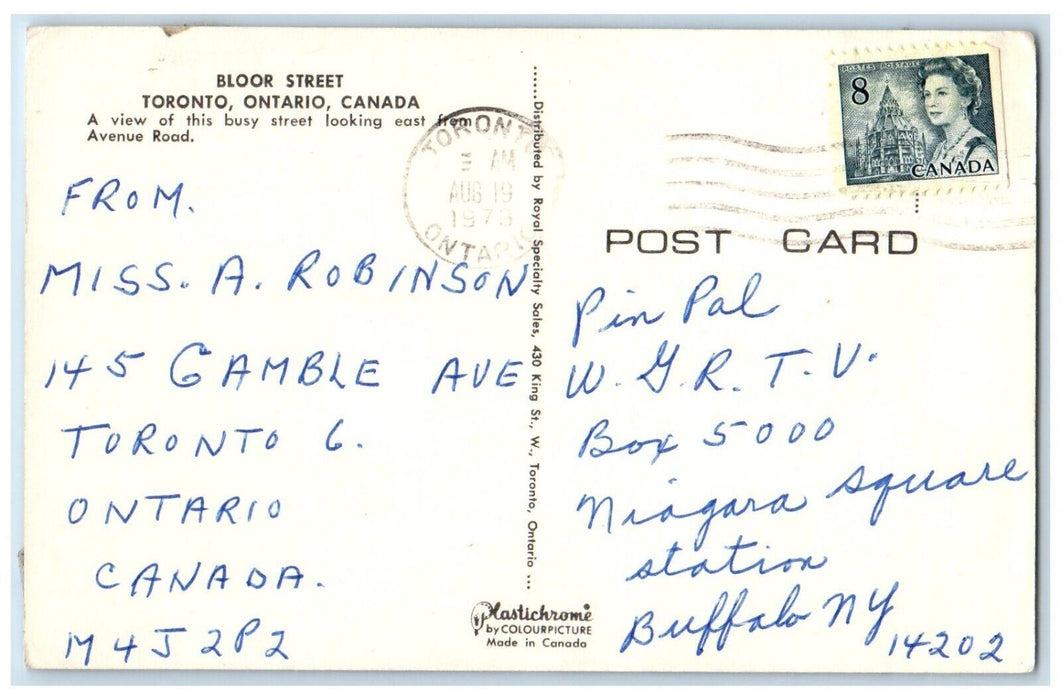 BLOOR STREET
TORONTO, ONTARIO, CANADA
A view of this busy street looking east from
Avenue Road.
FROM.
MISS. A. ROBINSON
145 GAMBLE AVE
TORONTO 6.
ONTARIO
CANADA.
M4J 2P2
TORONTO
AM
AUG 19
1973
ONTARIO
.....Distributed by Royal Specialty Sales, 430 King St., W., Toronto, Ontario ...
Plastichrome
by COLOURPICTURE
Made in Canada
POSTES POSTAGE
8
CANADA
POST CARD
Pin Pal
W. G. R. T. V.
Box 5000
Niagara square
station
Buffalo NY
14202